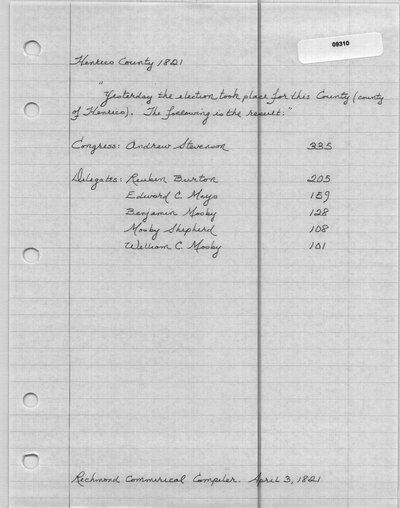 09310
Henrico County 1821
"Yesterday the election took place for this County (county
of Henrico). The following is the result:"
Congress: Andrew Stevenson 335
Delegates: Reuben Burton 205
Edward C. Mayo 159
Benjamin Mosby 128
Mosby Shepherd 108
William C. Mosby 101
Richmond Commerical Compiler. April 3, 1821